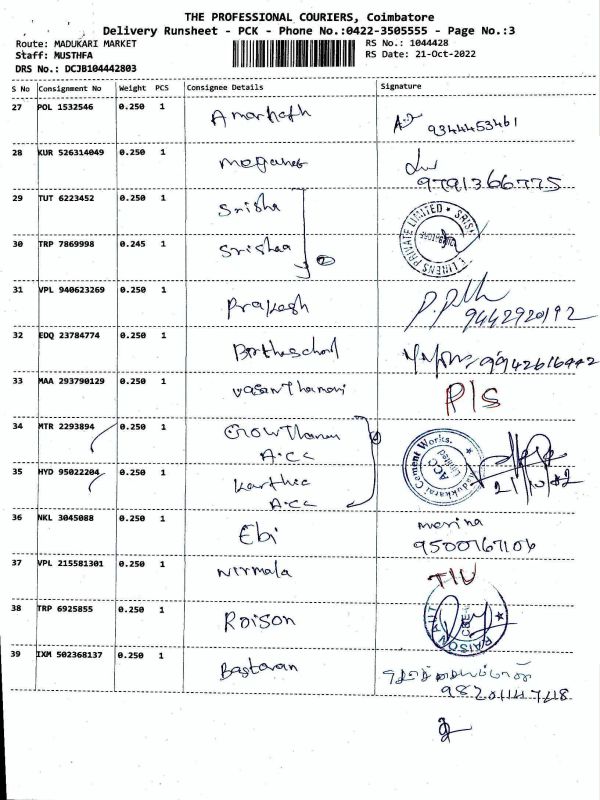 THE PROFESSIONAL COURIERS, Coimbatore
Delivery Runsheet - PCK - Phone No.:0422-3505555 - Page No.:3
Route: MADUKARI MARKET
RS No.: 1044428
Staff: MUSTHFA
RS Date: 21-Oct-2022
DRS No.: DCJB104442803
S No Consignment No Weight PCS Consignee Details Signature
27 POL 1532546 0.250 1 Amarnath 9344453461
28 KUR 526314049 0.250 1 9791366775
29 TUT 6223452 0.250 1 Srisha
30 TRP 7869998 0.245 1 Srishaa 2
LINENS PRIVATE LIMITED
31 VPL 940623269 0.250 1 Prakash 9442920192
32 EDQ 23784774 0.250 1
33 MAA 293790129 0.250 1 Vasanthamani P/S
34 MTR 2293894 0.250 1 Gowthanam
A.C.C
35 HYD 95022204 0.250 1 Karthic
A.C.C
ACC Limited Madukkarai Cement Works.
36 NKL 3045088 0.250 1 Ebi merina
9500767106
37 VPL 215581301 0.250 1 Nirmala TIU
38 TRP 6925855 0.250 1 Roison
RAISON AUT CBE
39 IXM 502368137 0.250 1 Bastavan